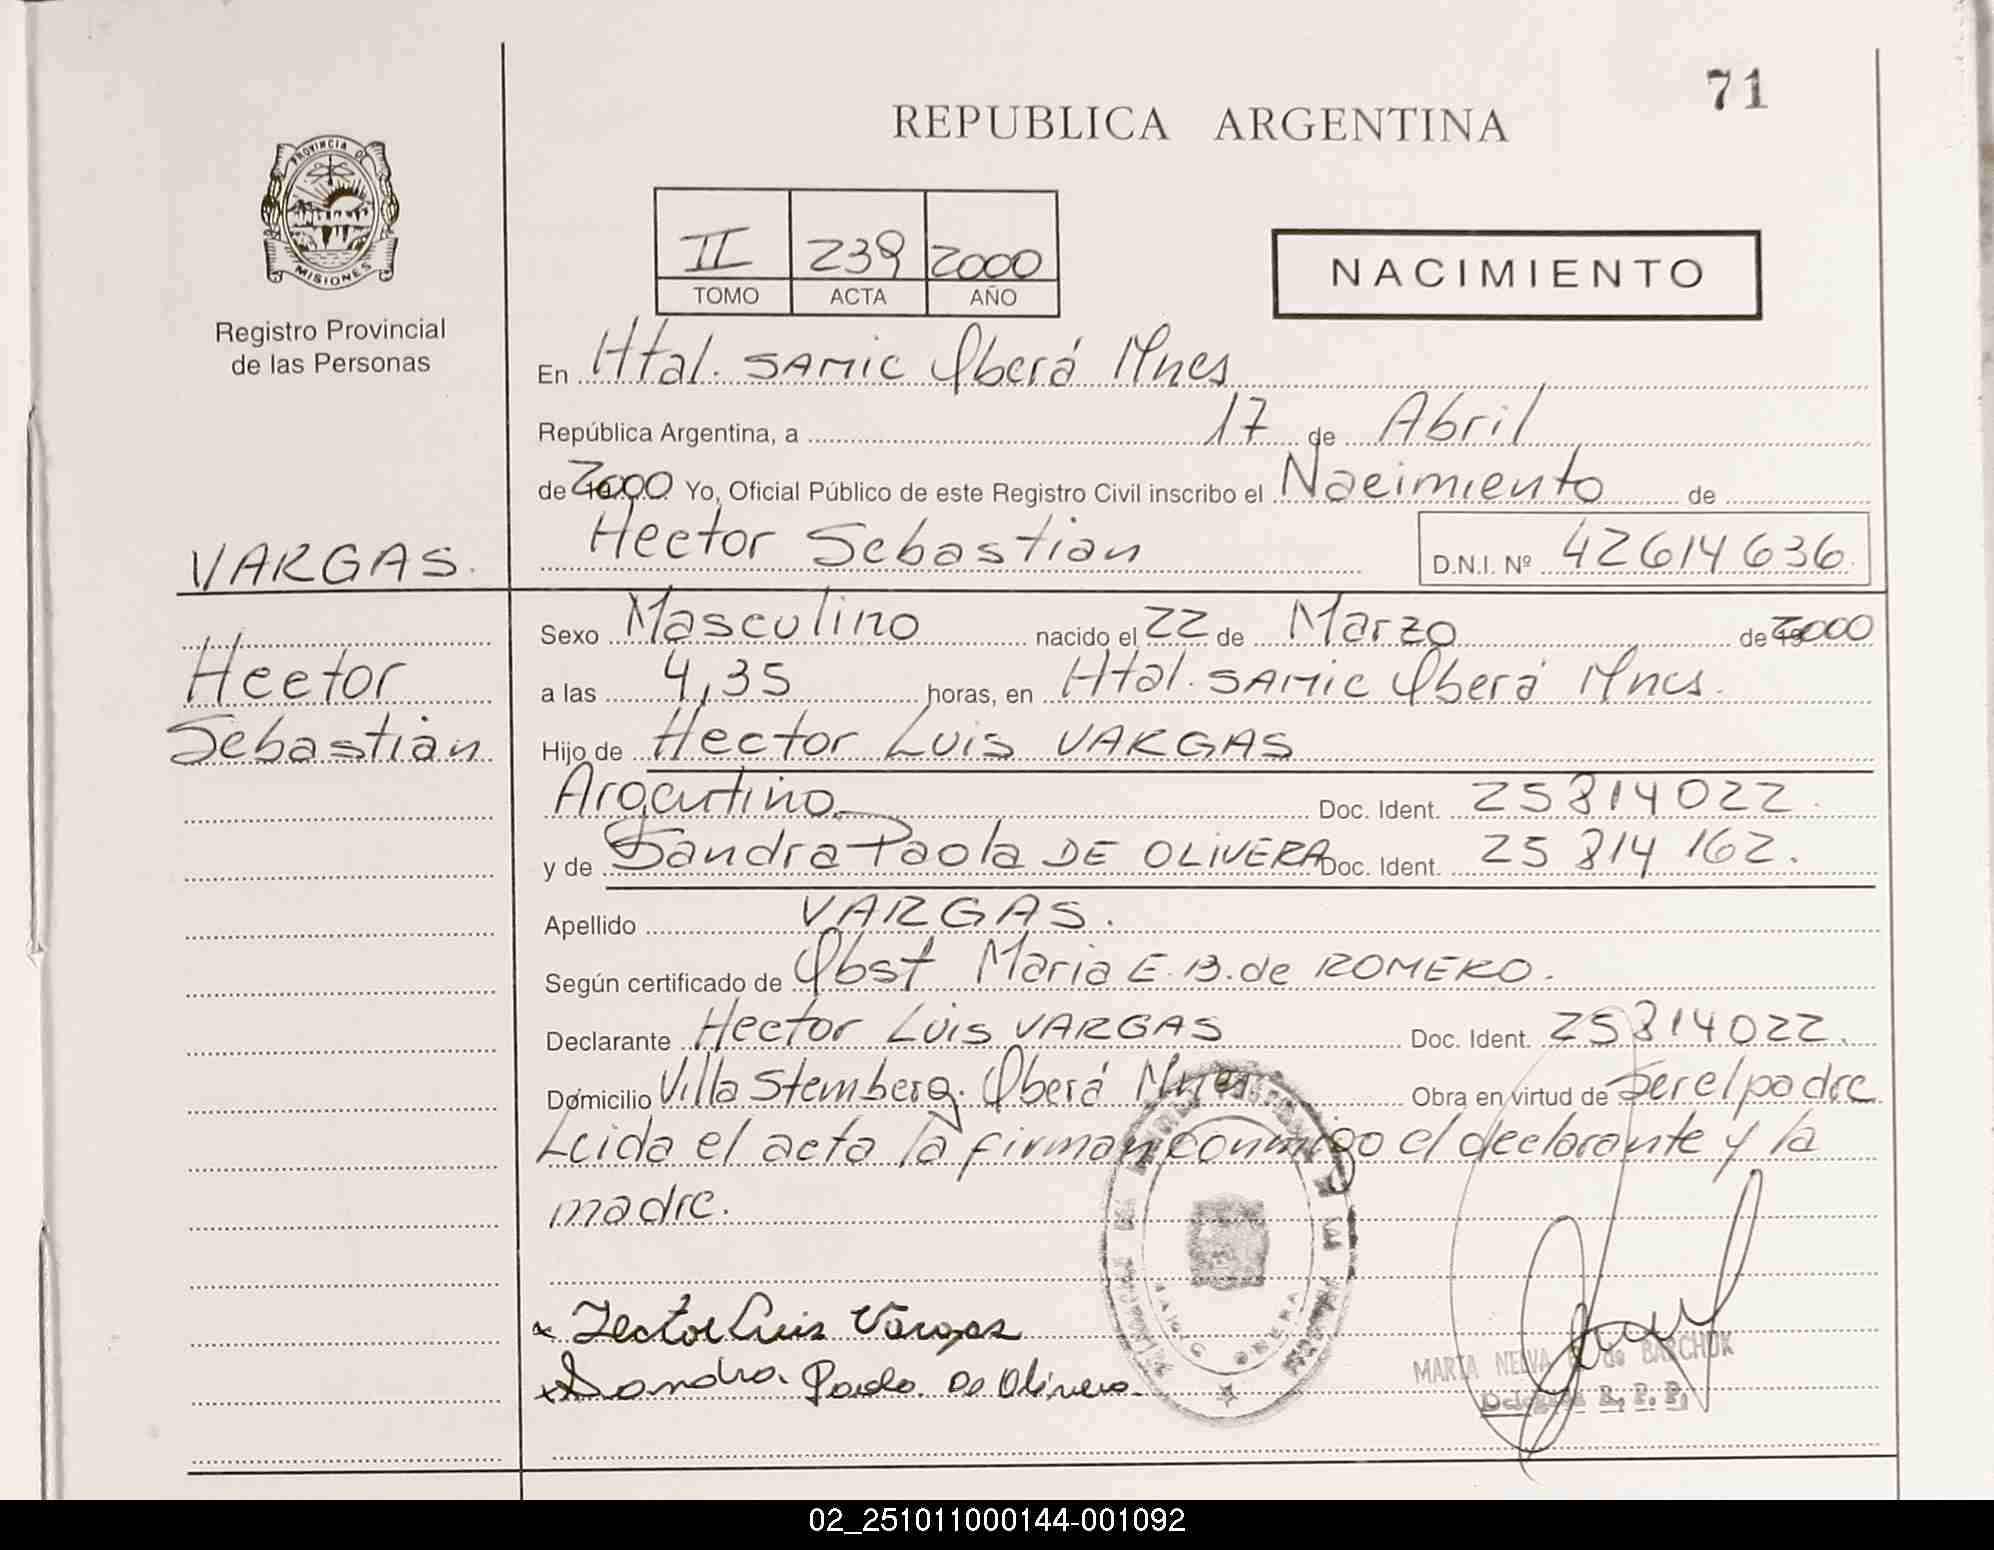 71
REPUBLICA ARGENTINA
PROVINCIA DE
MISIONES
Registro Provincial
de las Personas
II 239 2000
TOMO ACTA AÑO
NACIMIENTO
En Htal. SAMIC Oberá Mnes
República Argentina, a 17 de Abril
de 2000 Yo, Oficial Público de este Registro Civil inscribo el Nacimiento de
Hector Sebastián D.N.I. Nº 42614636.
VARGAS.
Hector
Sebastián
Sexo Masculino nacido el 22 de Marzo de 2000
a las 4,35 horas, en Htal. SAMIC Oberá Mnes.
Hijo de Hector Luis VARGAS
Argentino Doc. Ident. 25814022.
y de Sandra Paola DE OLIVERA Doc. Ident. 25 814 162.
Apellido VARGAS.
Según certificado de Obst Maria E. B. de ROMERO.
Declarante Hector Luis VARGAS Doc. Ident. 25814022.
Domicilio Villa Stemberg. Oberá Mnes Obra en virtud de Ser el padre
Leida el acta la firman conmigo el declarante y la
madre.
x Hector Luis Vargas
x Sandra Paola De Olivera.
MARTA NELVA de BARCHUK
Delegada R. P. P.
02_251011000144-001092